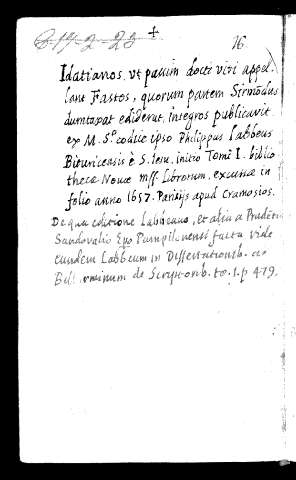 16.
Idatianos, vt passim docti viri appel-
lant Fastos, quorum partem Sirmōdus
dumtaxat ediderat, integros publicavit
ex M.S.º codice ipso Philippus Labbeus
Bituricensis è S. Iesu, initio Tomi I. biblio
thecæ Nouæ mss. librorum, excussæ in
folio anno 1657. Parisijs apud Cramosios.
De qua editione Labbeana, et alia a Prudētio
Sandovalio Epō Pampilonensi facta vide
eundem Labbeum in Dissertationib. ad
Bellarminum de Scriptorib. to. 1. p 479.